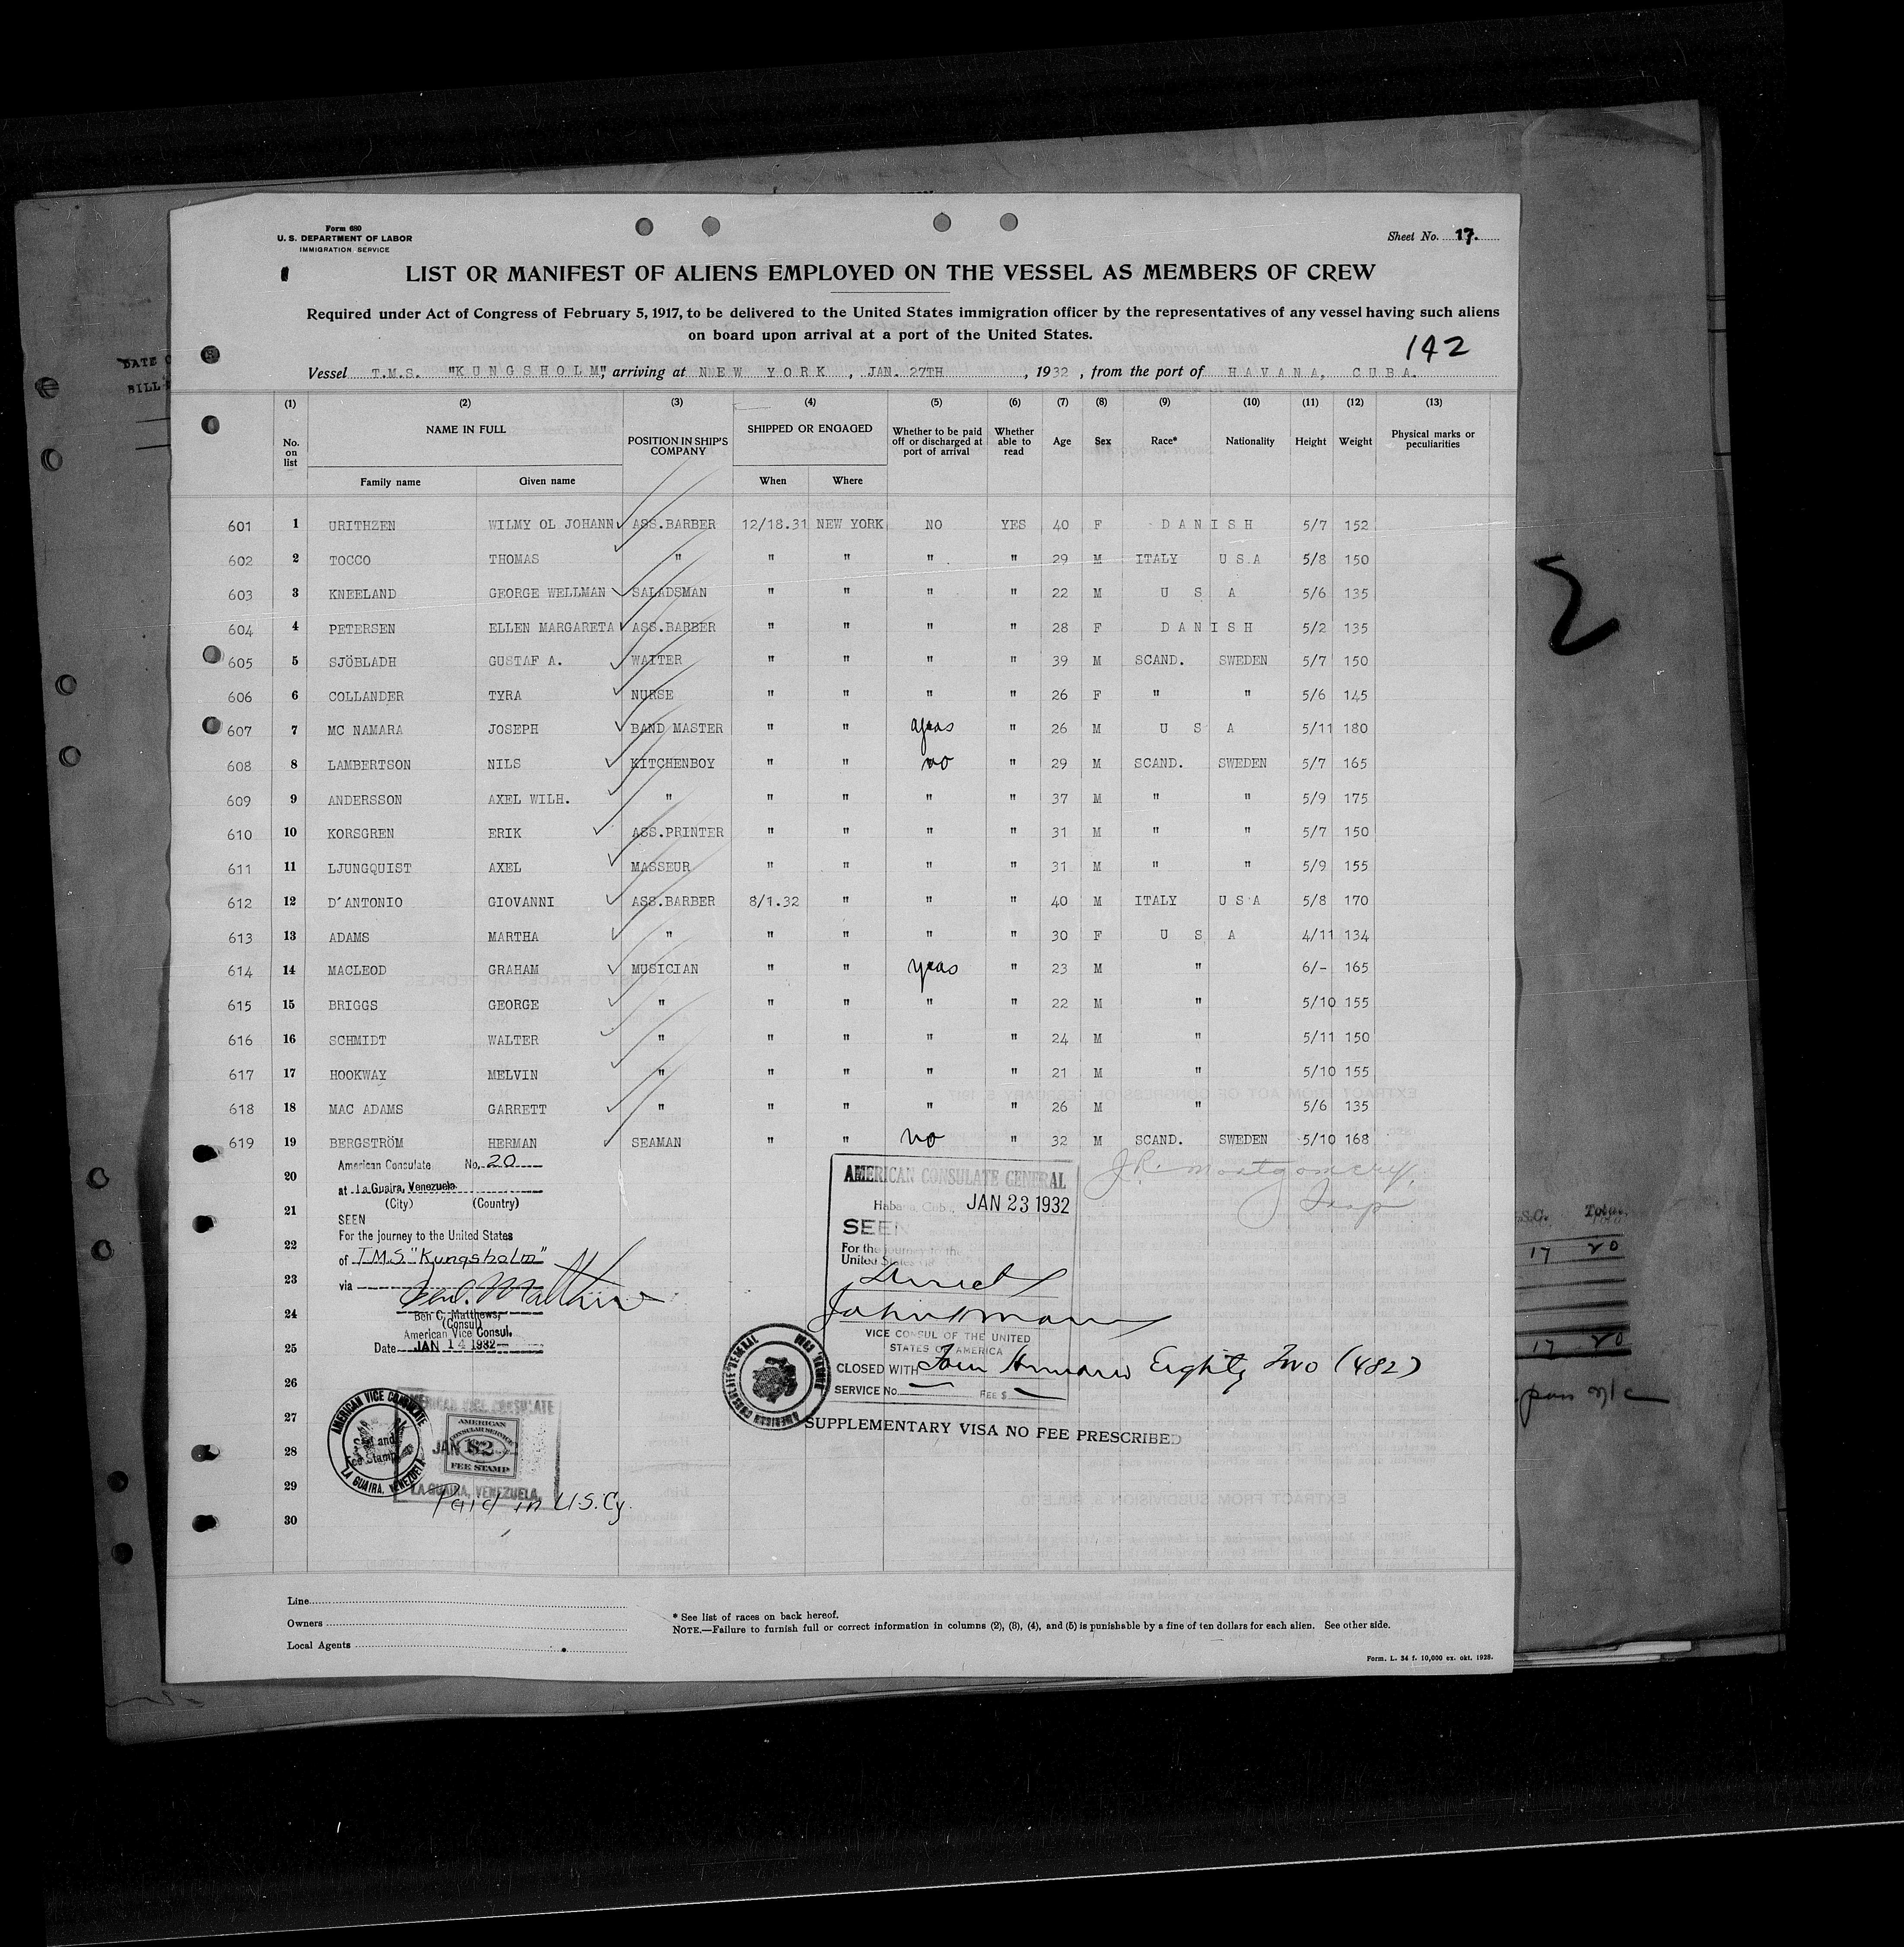 Form 680
U. S. DEPARTMENT OF LABOR
IMMIGRATION SERVICE
Sheet No. 17.
LIST OR MANIFEST OF ALIENS EMPLOYED ON THE VESSEL AS MEMBERS OF CREW
Required under Act of Congress of February 5, 1917, to be delivered to the United States immigration officer by the representatives of any vessel having such aliens
on board upon arrival at a port of the United States.
142
Vessel T.M.S. "KUNGSHOLM", arriving at NEW YORK, JAN. 27TH, 1932, from the port of HAVANA, CUBA.
(1) (2) (3) (4) (5) (6) (7) (8) (9) (10) (11) (12) (13)
No. on list NAME IN FULL POSITION IN SHIP'S COMPANY SHIPPED OR ENGAGED Whether to be paid off or discharged at port of arrival Whether able to read Age Sex Race* Nationality Height Weight Physical marks or peculiarities
Family name Given name When Where
601 1 URITHZEN WILMY OL JOHANN ASS.BARBER 12/18.31 NEW YORK NO YES 40 F DANISH 5/7 152
602 2 TOCCO THOMAS " " " " " 29 M ITALY U S A 5/8 150
603 3 KNEELAND GEORGE WELLMAN SALADSMAN " " " " 22 M U S A 5/6 135
604 4 PETERSEN ELLEN MARGARETA ASS.BARBER " " " " 28 F DANISH 5/2 135
605 5 SJÖBLADH GUSTAF A. WAITER " " " " 39 M SCAND. SWEDEN 5/7 150
606 6 COLLANDER TYRA NURSE " " " " 26 F " " 5/6 145
607 7 MC NAMARA JOSEPH BAND MASTER " " " 26 M U S A 5/11 180
608 8 LAMBERTSON NILS KITCHENBOY " " no " 29 M SCAND. SWEDEN 5/7 165
609 9 ANDERSSON AXEL WILH. " " " " " 37 M " " 5/9 175
610 10 KORSGREN ERIK ASS.PRINTER " " " " 31 M " " 5/7 150
611 11 LJUNGQUIST AXEL MASSEUR " " " " 31 M " " 5/9 155
612 12 D'ANTONIO GIOVANNI ASS.BARBER 8/1.32 " " " 40 M ITALY U S A 5/8 170
613 13 ADAMS MARTHA " " " " " 30 F U S A 4/11 134
614 14 MACLEOD GRAHAM MUSICIAN " " " 23 M " 6/- 165
615 15 BRIGGS GEORGE " " " " " 22 M " 5/10 155
616 16 SCHMIDT WALTER " " " " " 24 M " 5/11 150
617 17 HOOKWAY MELVIN " " " " " 21 M " 5/10 155
618 18 MAC ADAMS GARRETT " " " " " 26 M " 5/6 135
619 19 BERGSTRÖM HERMAN SEAMAN " " no " 32 M SCAND. SWEDEN 5/10 168
20
21
22
23
24
25
26
27
28
29
30
American Consulate No. 20
at La Guaira, Venezuela
(City) (Country)
SEEN
For the journey to the United States
of T.M.S "Kungsholm"
via
Ben C. Matthews,
(Consul)
American Vice Consul.
Date JAN 14 1932
AMERICAN VICE CONSULATE
Seal and
Fee Stamp
LA GUAIRA, VENEZUELA
AMERICAN VICE CONSULATE
JAN
AMERICAN
CONSULAR SERVICE
$2
FEE STAMP
LA GUAIRA, VENEZUELA.
Paid in U.S.Cy.
AMERICAN CONSULATE GENERAL
Habana, Cuba, JAN 23 1932
SEEN
For the journey to the
United States
VICE CONSUL OF THE UNITED
STATES OF AMERICA
CLOSED WITH Four Hundred Eighty Two (482)
SERVICE No. FEE $
AMERICAN CONSULATE GENERAL
SUPPLEMENTARY VISA NO FEE PRESCRIBED
J.R. Montgomery,
Insp
Line
Owners
Local Agents
* See list of races on back hereof.
NOTE.—Failure to furnish full or correct information in columns (2), (3), (4), and (5) is punishable by a fine of ten dollars for each alien. See other side.
Form. L. 34 f. 10,000 ex. okt. 1928.
DATE
BILL
Total
17 20
17 20